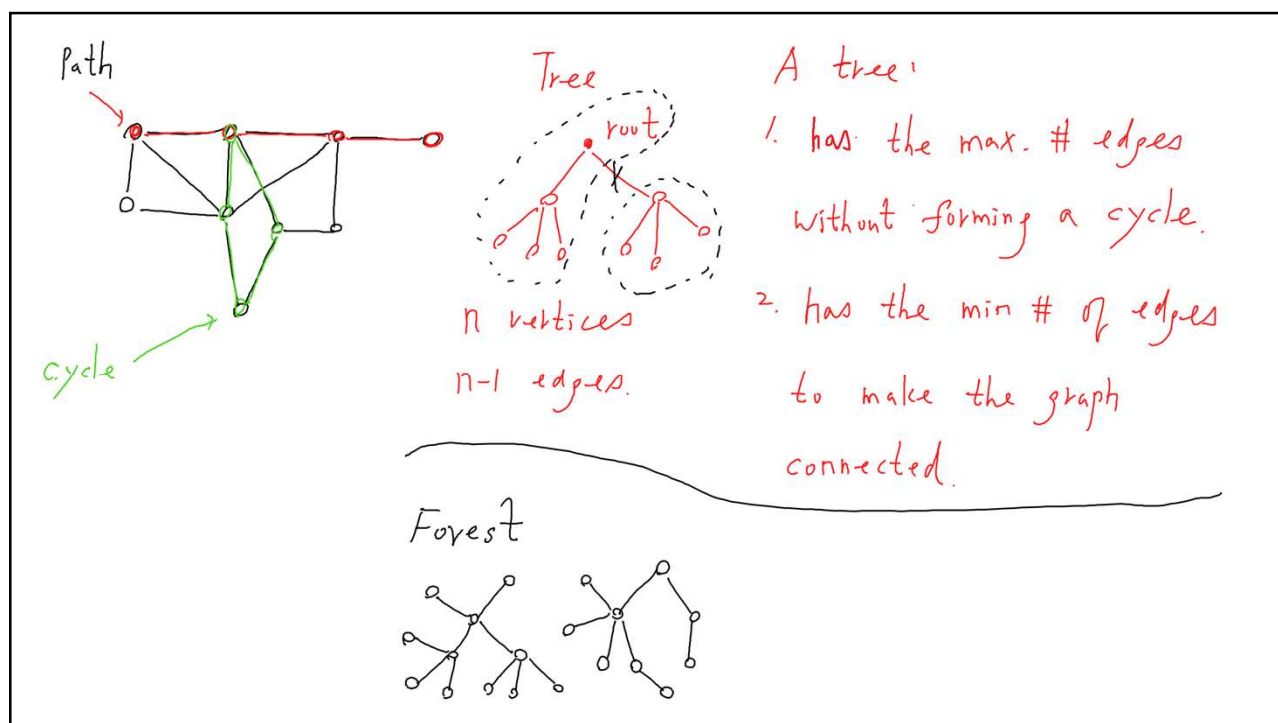 Path
cycle
Tree
root
n vertices
n-1 edges.
A tree:
1. has the max. # edges
without forming a cycle.
2. has the min # of edges
to make the graph
connected.
Forest